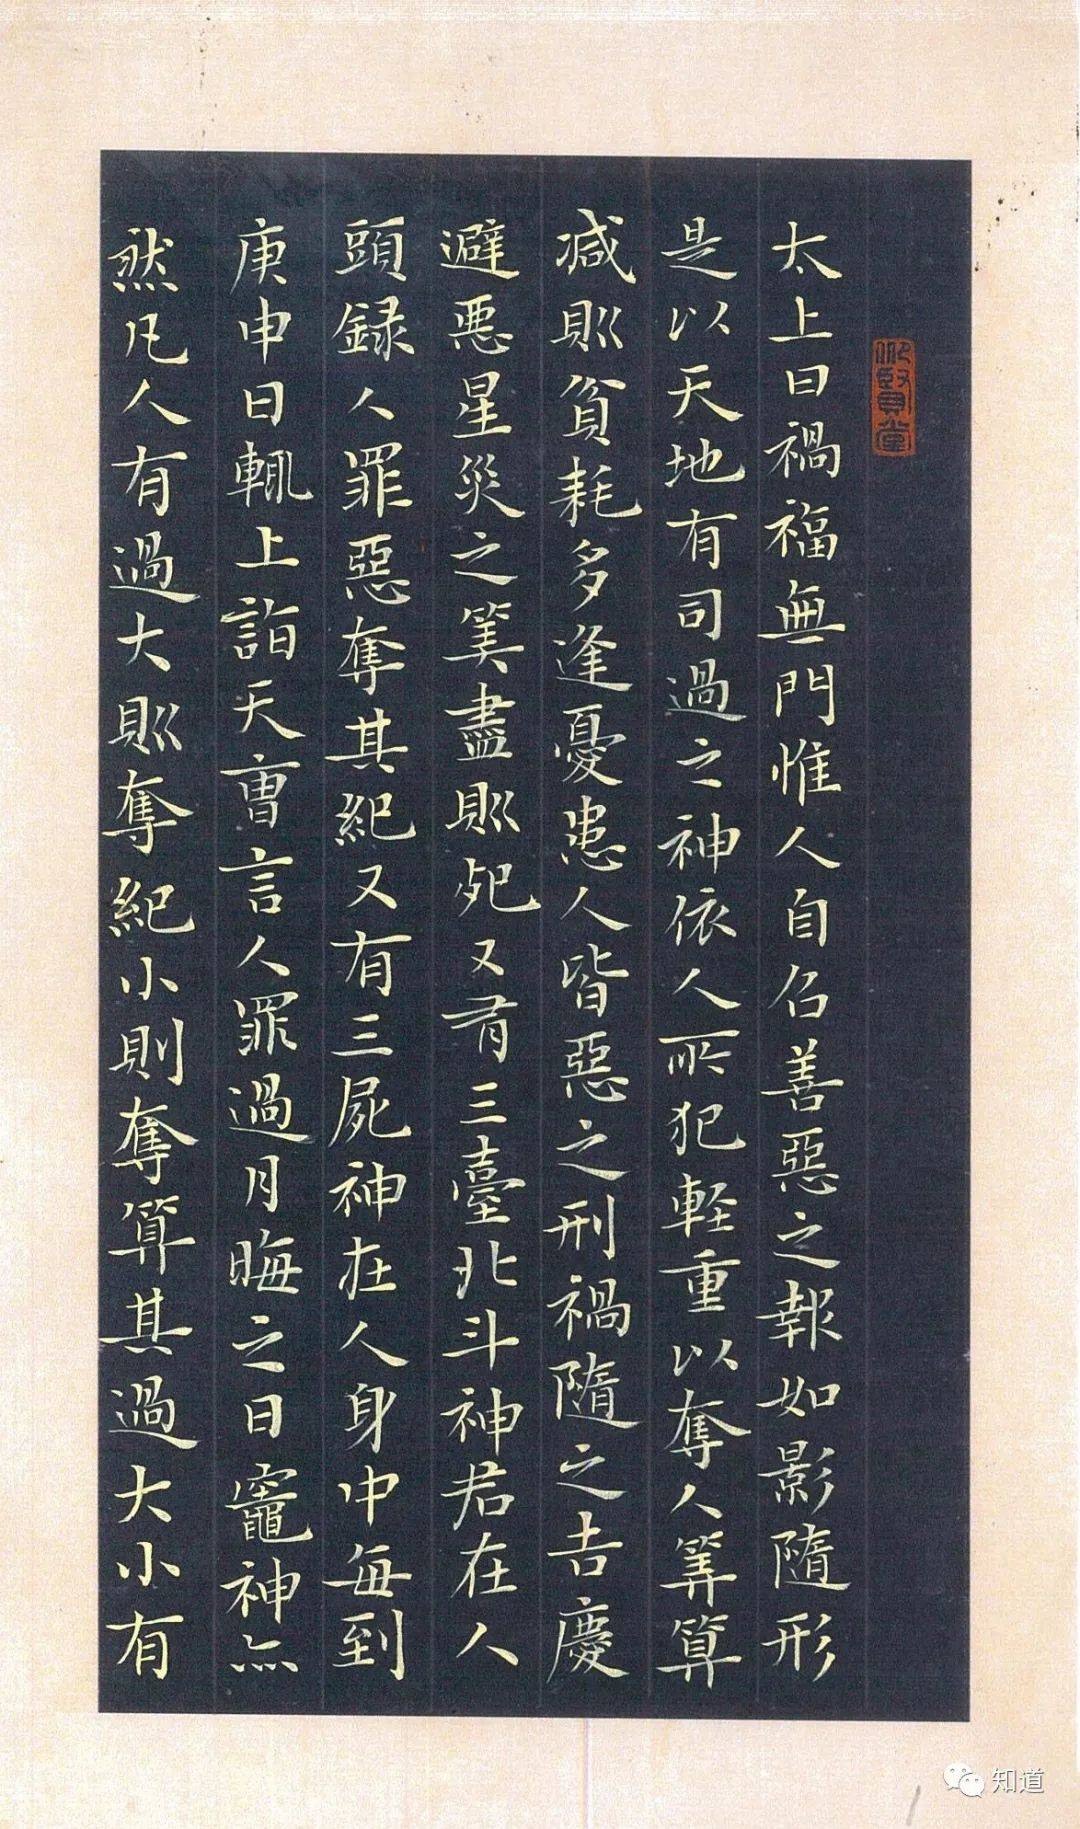 太上曰禍福無門惟人自召善惡之報如影隨形
是以天地有司過之神依人所犯輕重以奪人筭算
减則貧耗多逢憂患人皆惡之刑禍隨之吉慶
避悪星災之筭盡則死又有三臺北斗神君在人
頭録人罪惡奪其紀又有三屍神在人身中每到
庚申日輒上詣天曹言人罪過月晦之日竈神亦
然凡人有過大則奪紀小則奪算其過大小有
知道